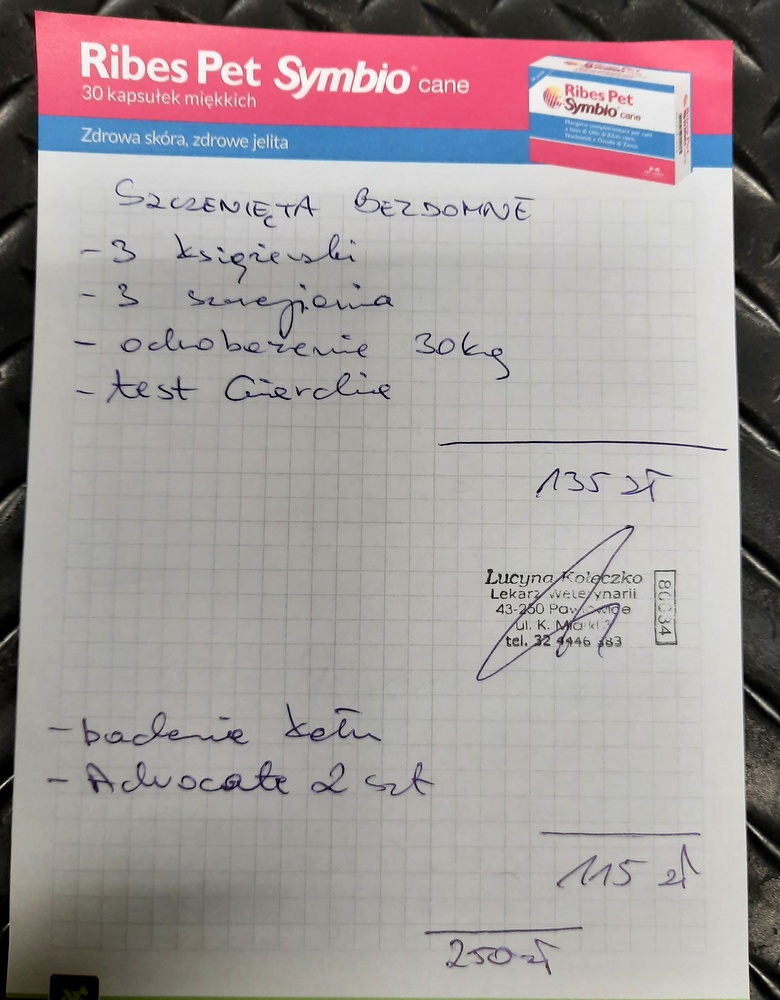 Ribes Pet Symbio cane
30 kapsułek miękkich
Zdrowa skóra, zdrowe jelita
Ribes Pet
Symbio cane
SZCZENIĘTA BEZDOMNE
- 3 książeczki
- 3 szczepienia
- odrobaczenie 30kg
- test Giardie
135 zł
Lucyna Kołeczko
Lekarz Weterynarii
43-250 Pawłowice
ul. K. Miarki
tel. 32 4446 383
- badanie kału
- Advocate 2 szt
115 zł
250 zł